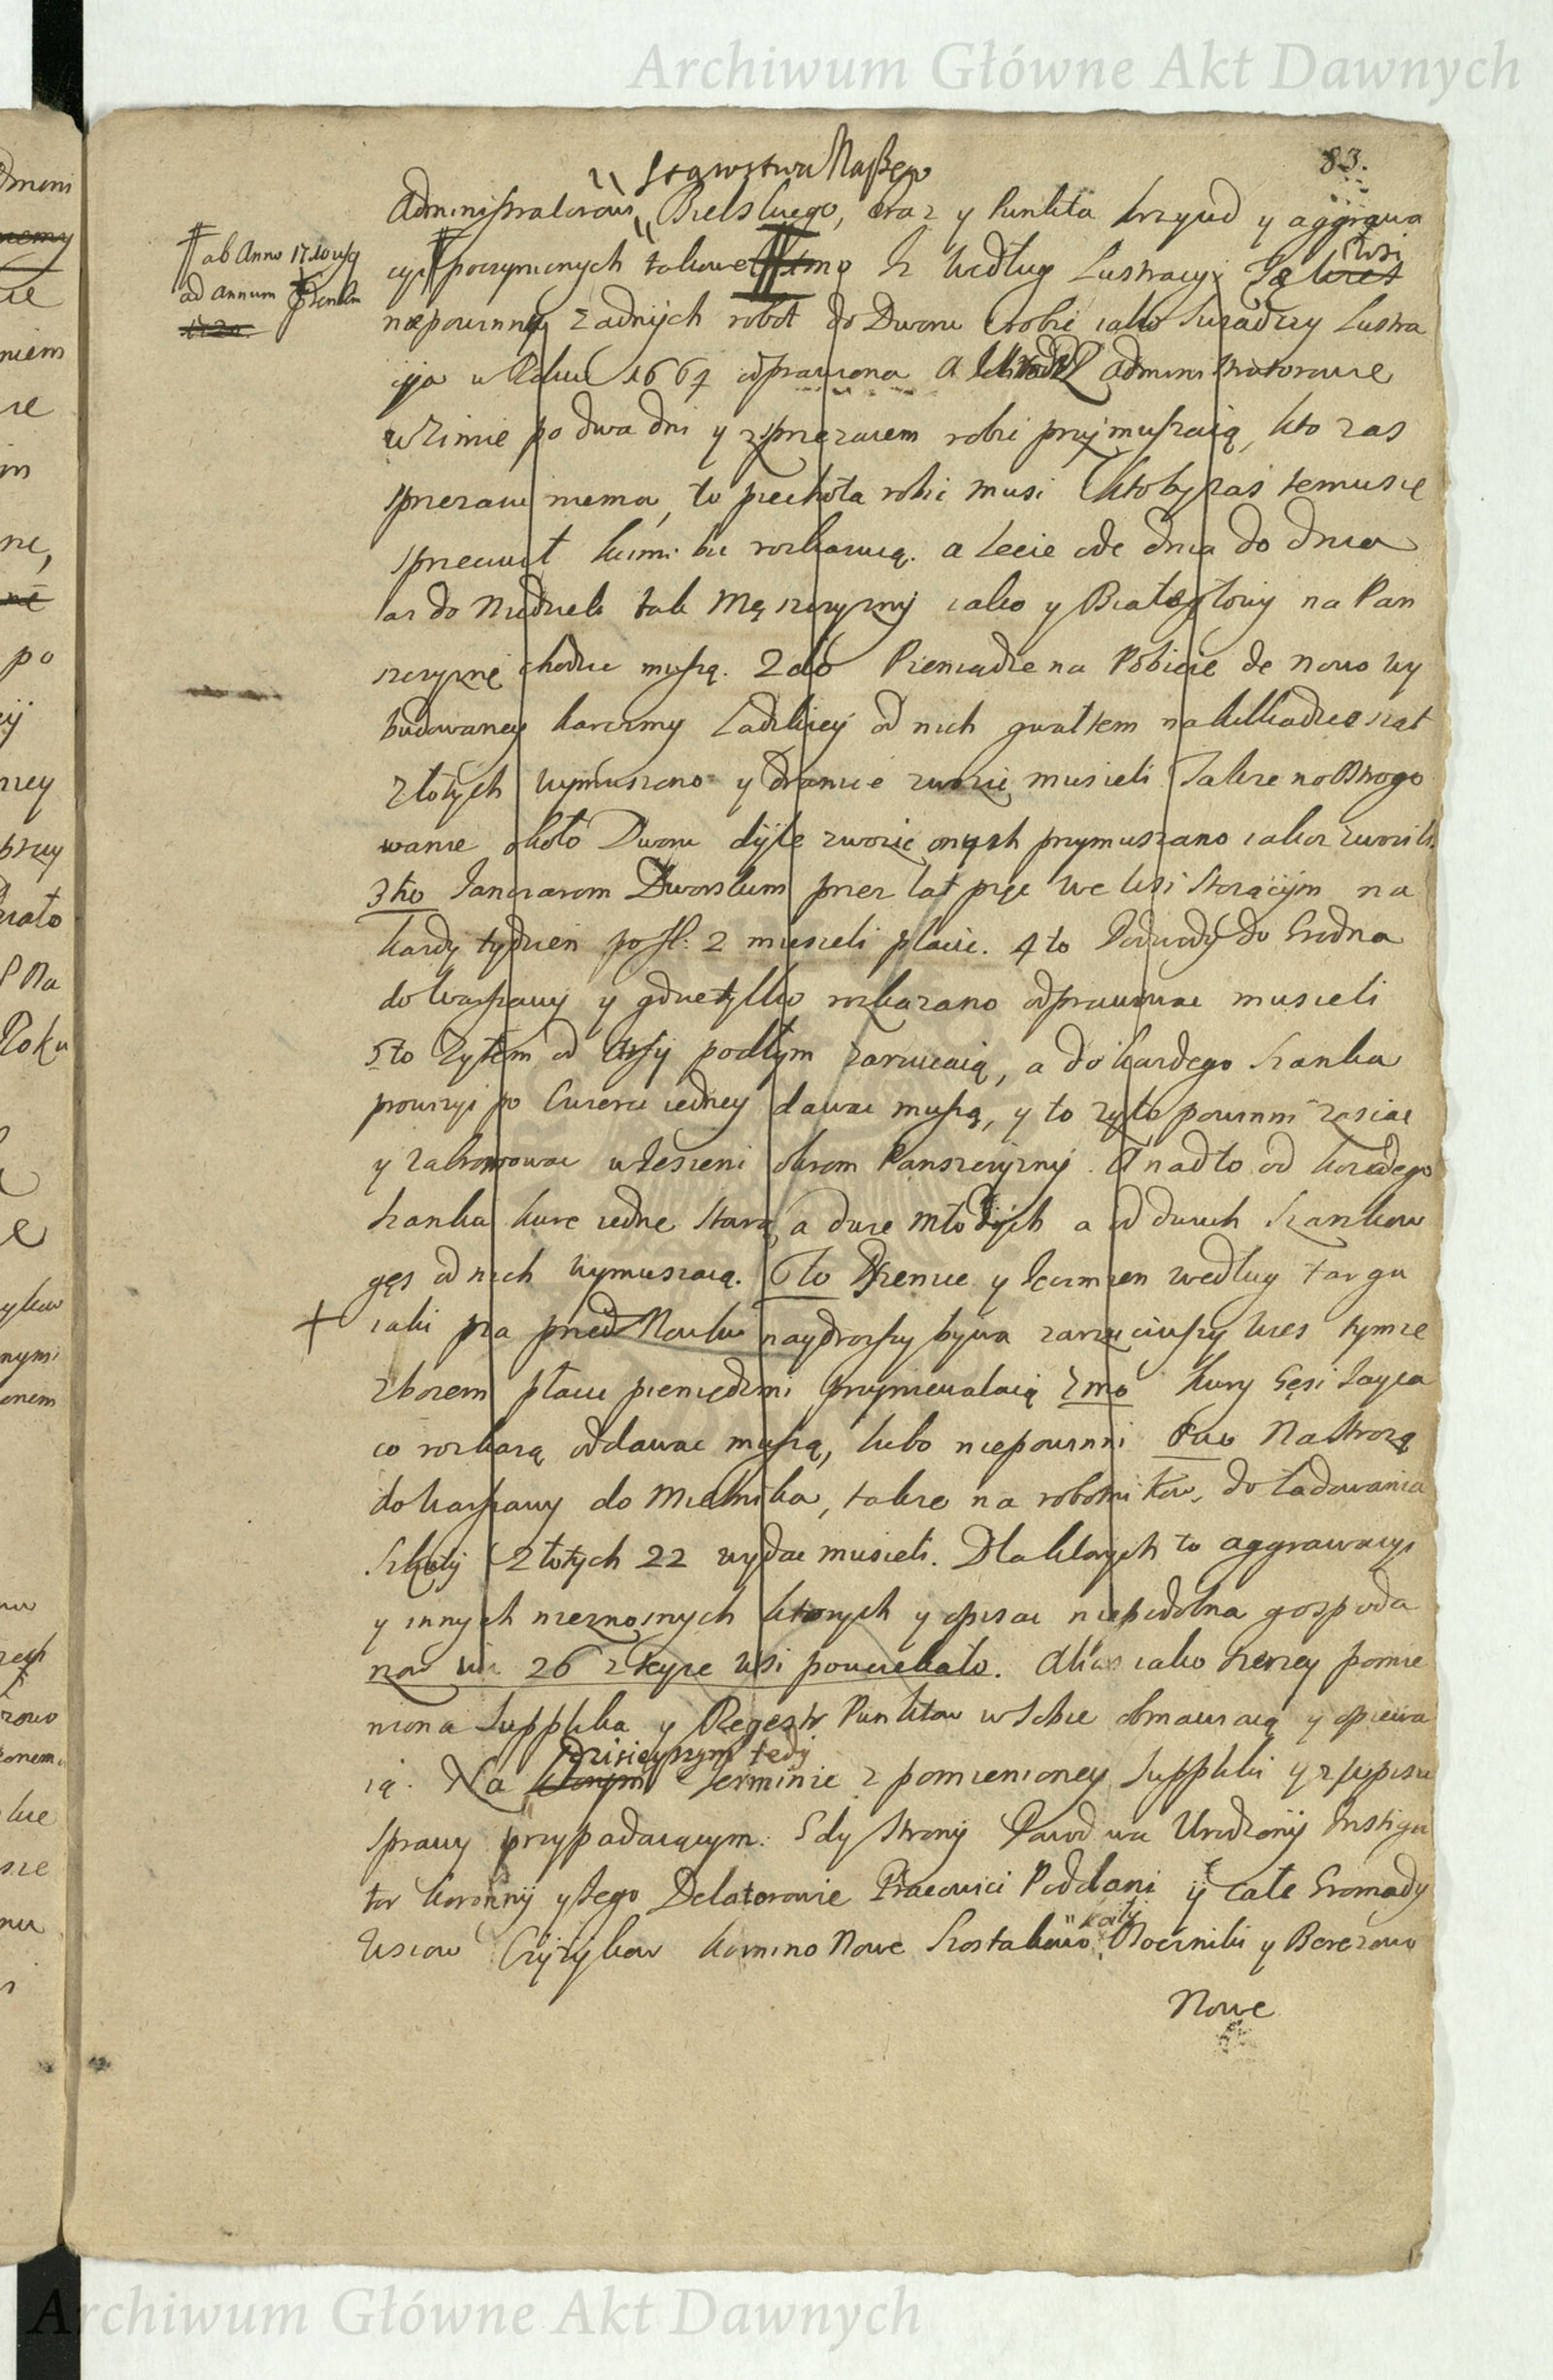 Archiwum Główne Akt Dawnych
83.
Starostwa Naszego
Administratorowi Bielskiego, oraz y Punkta krzywd y aggrawa
ab Anno 1710 usq
ad annum
1720
cyi poczynionych takowe 1mo Iz według Lustracyi Ta wies
wsi
niepowinna żadnych robot do Dworu robic iako swiadczy Lustra
cyja w Roku 1664 odprawiona a Administratorowie
w Zimie po dwa dni y z sprzezaiem robic przymuszaią, kto zas
sprzezaiu niema, to piechota robic musi ktoby zas temu sie
sprzeciwił kiimi bic rozkazuią. a Lecie ode dnia do dnia
az do Niedzieli tak Męszczyzny iako y Białogłowy na Pan
szczyznę chodzic muszą. 2do Pieniądze na Pobicie de novo wy
budowaney karczmy Ladzkiey od nich gwałtem na kilkadziesiat
złotych wymuszono y dranice zwozic musieli Takze na Ostrogo
wanie około Dworu dyle zwozic onych przymuszano iakoz zwozili.
3tio Janczarom Dworskim przez lat pięc we wsi stoiącym na
kazdy tydzien po fl: 2 musieli płacic. 4to Podwody do Grodna
do Warszawy y gdzie tylko rozkazano odprawiwac musieli
5to Zytem od Mszy podłym zarzucaią, a do kazdego Szanka
powinni po Cwierci iedney dawac muszą, y to zyto powinni zasiac
y zabronowac w Jesieni okrom Panszczyzny. A nadto od kozdego
Szanka kurę iedne starą, a dwie młodych a od dwuch Szankow
gęs od nich wymuszaią. 6to Pszenice y Jęczmien według targu
iaki na przed Nowku naydroższy bywa zarzuciwszy wies tymze
zbozem płacic pieniędzmi przyniewalaią 7mo Kury Gęsi Jayca
co rozkażą oddawac muszą, lubo niepowinni 8vo Na Strozą
do Warszawy do Mielnika, takze na robotnikow, do ładowania
Szkuty Złotych 22 wydac musieli. Dla ktorych to aggrawacyi
y innych nieznosnych ktorych y opisac niepodobna gospoda
rzow iuz 26 z teyze wsi pouciekało. Alias iako szerzey pomie
niona Supplika y Regestr Punktow w sobie obmawiaią y opiewa
ią. Na
dzisieyszym tedy
Terminie z pomienioney Suppliki y z wpisu
sprawy przypadaiącym. Gdy Strony Powodowa Urodzony Instiga
tor Koronny y Jego Delatorowie Pracowici Poddani y całe Gromady
Wsiow Czyzykow Kamino Nowe Szostakowo, Woernihi y Berezowo
Nowe
Archiwum Główne Akt Dawnych